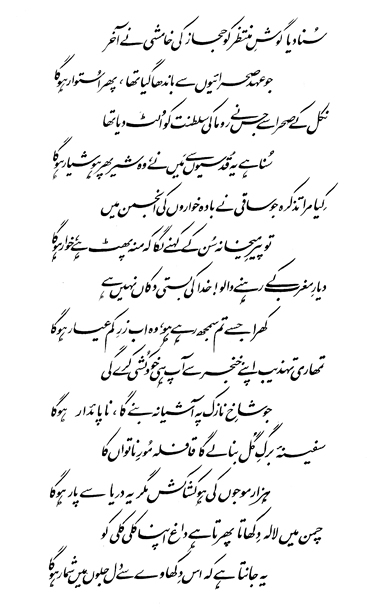 سُنا دیا گوشِ منتظر کو حجاز کی خامشی نے آخر
جو عہد صحرائیوں سے باندھا گیا تھا، پھر اُستوار ہوگا
نکل کے صحرا سے جس نے روما کی سلطنت کو اُلٹ دیا تھا
سُنا ہے یہ قُدسیوں سے مَیں نے، وہ شیر پھر ہوشیار ہوگا
کِیا مرا تذکرہ جو ساقی نے بادہ خواروں کی انجمن میں
تو پیرِ میخانہ سُن کے کہنے لگا کہ منہ پھٹ ہے، خوار ہوگا
دیارِ مغرب کے رہنے والو! خدا کی بستی دکاں نہیں ہے
کھرا جسے تم سمجھ رہے ہو، وہ اب زرِ کم عیار ہوگا
تمھاری تہذیب اپنے خنجر سے آپ ہی خودکُشی کرے گی
جو شاخِ نازک پہ آشیانہ بنے گا، ناپائدار ہوگا
سفینۂ برگِ گُل بنا لے گا قافلہ مُورِ ناتواں کا
ہزار موجوں کی ہو کشاکش مگر یہ دریا سے پار ہوگا
چمن میں لالہ دِکھاتا پھرتا ہے داغ اپنا کلی کلی کو
یہ جانتا ہے کہ اس دِکھاوے سے دل جلوں میں شمار ہوگا